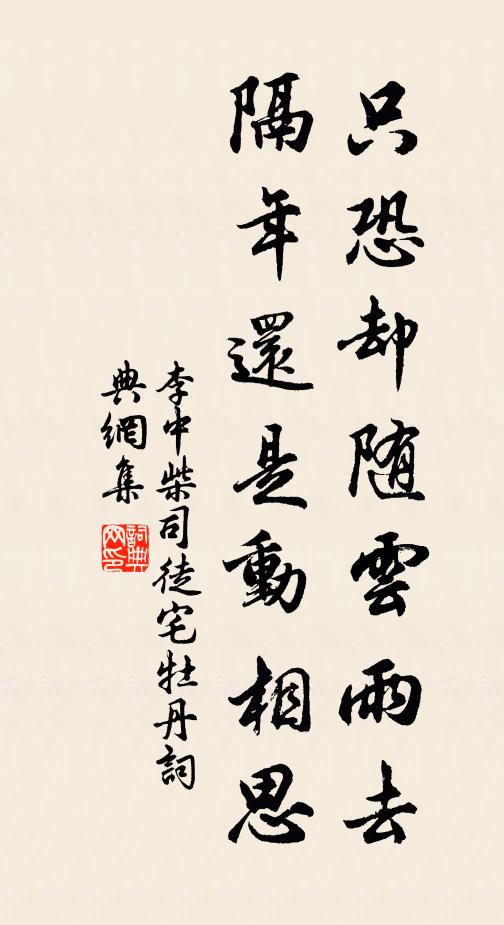 只恐却随雲雨去
隔年還是動相思
李中柴司徒宅牡丹詞
典網集
詞典
网印